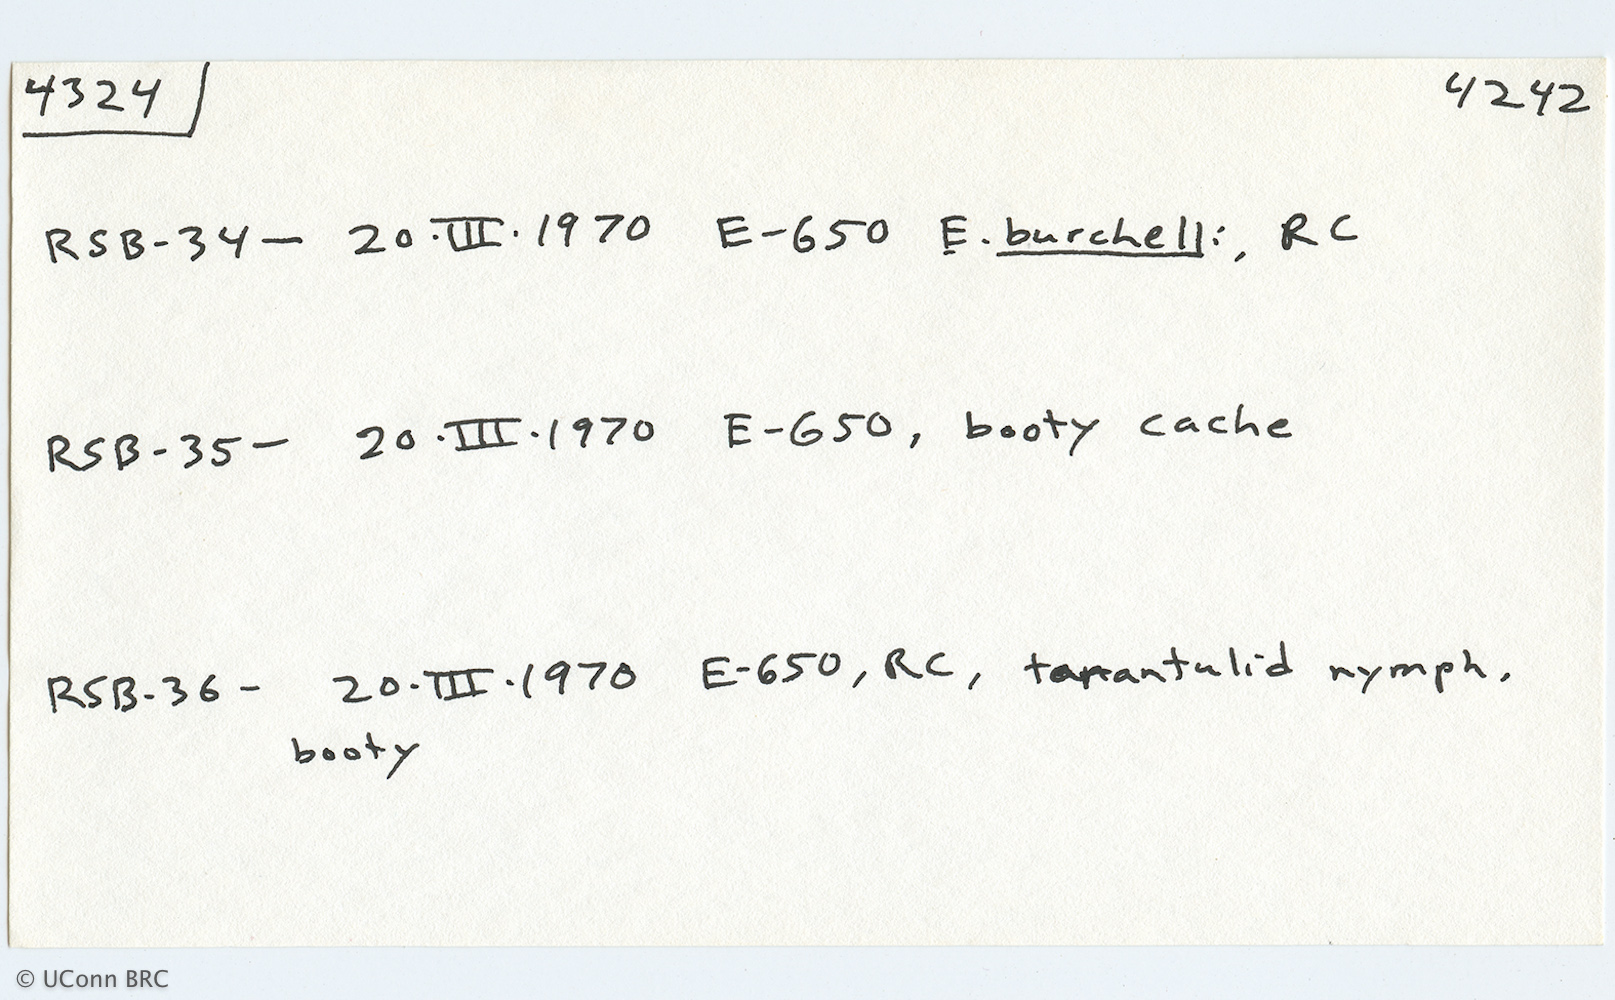 4324 4242
RSB-34 - 20.III.1970 E-650 E. burchelli, RC
RSB-35 - 20.III.1970 E-650, booty cache
RSB-36 - 20.III.1970 E-650, RC, tarantulid nymph,
booty
© UConn BRC